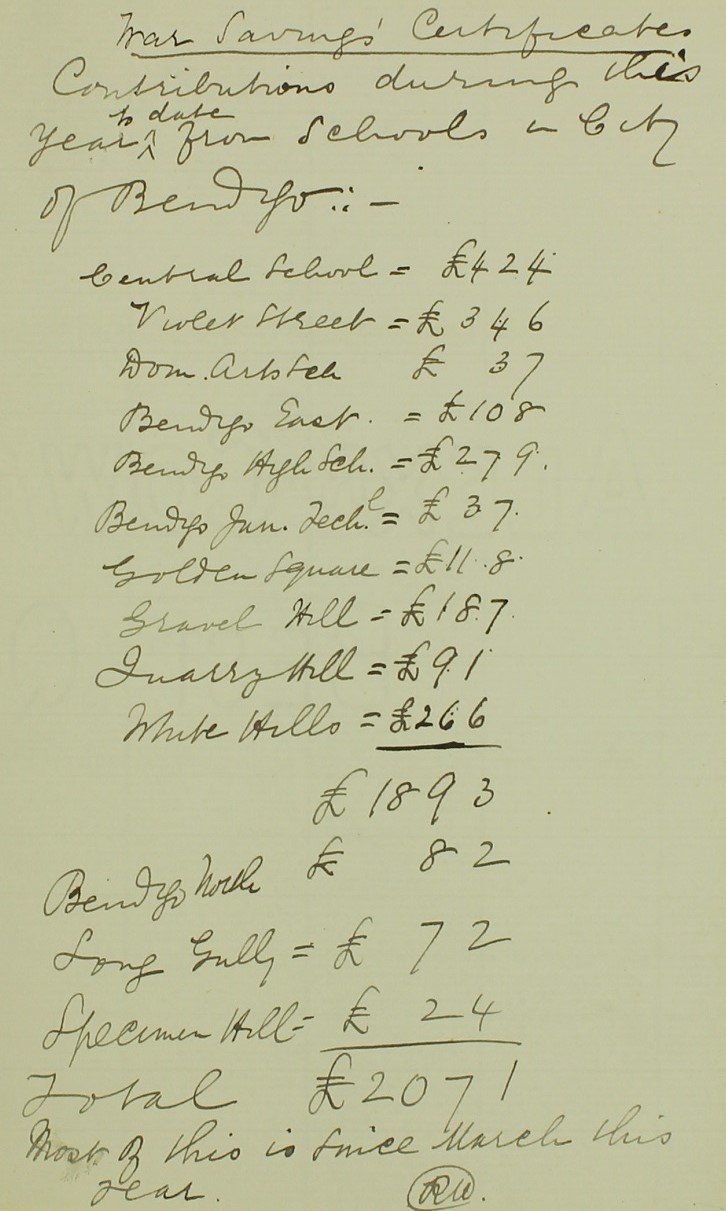 War Savings' Certificates
Contributions during this
to date
Year ^ from Schools in City
of Bendigo :: -
Central School = £424
Violet Street = £346
Dom. Arts Sch £ 37
Bendigo East. = £108
Bendigo High Sch. = £279.
Bendigo Jun. Techl. = £37.
Golden Square = £118.
Gravel Hill = £187.
Quarry Hill = £91
White Hills = £266
£1893
Bendigo North £ 82
Long Gully = £ 72
Specimen Hill = £ 24
Total £2071
Most of this is since March this
year. RW.